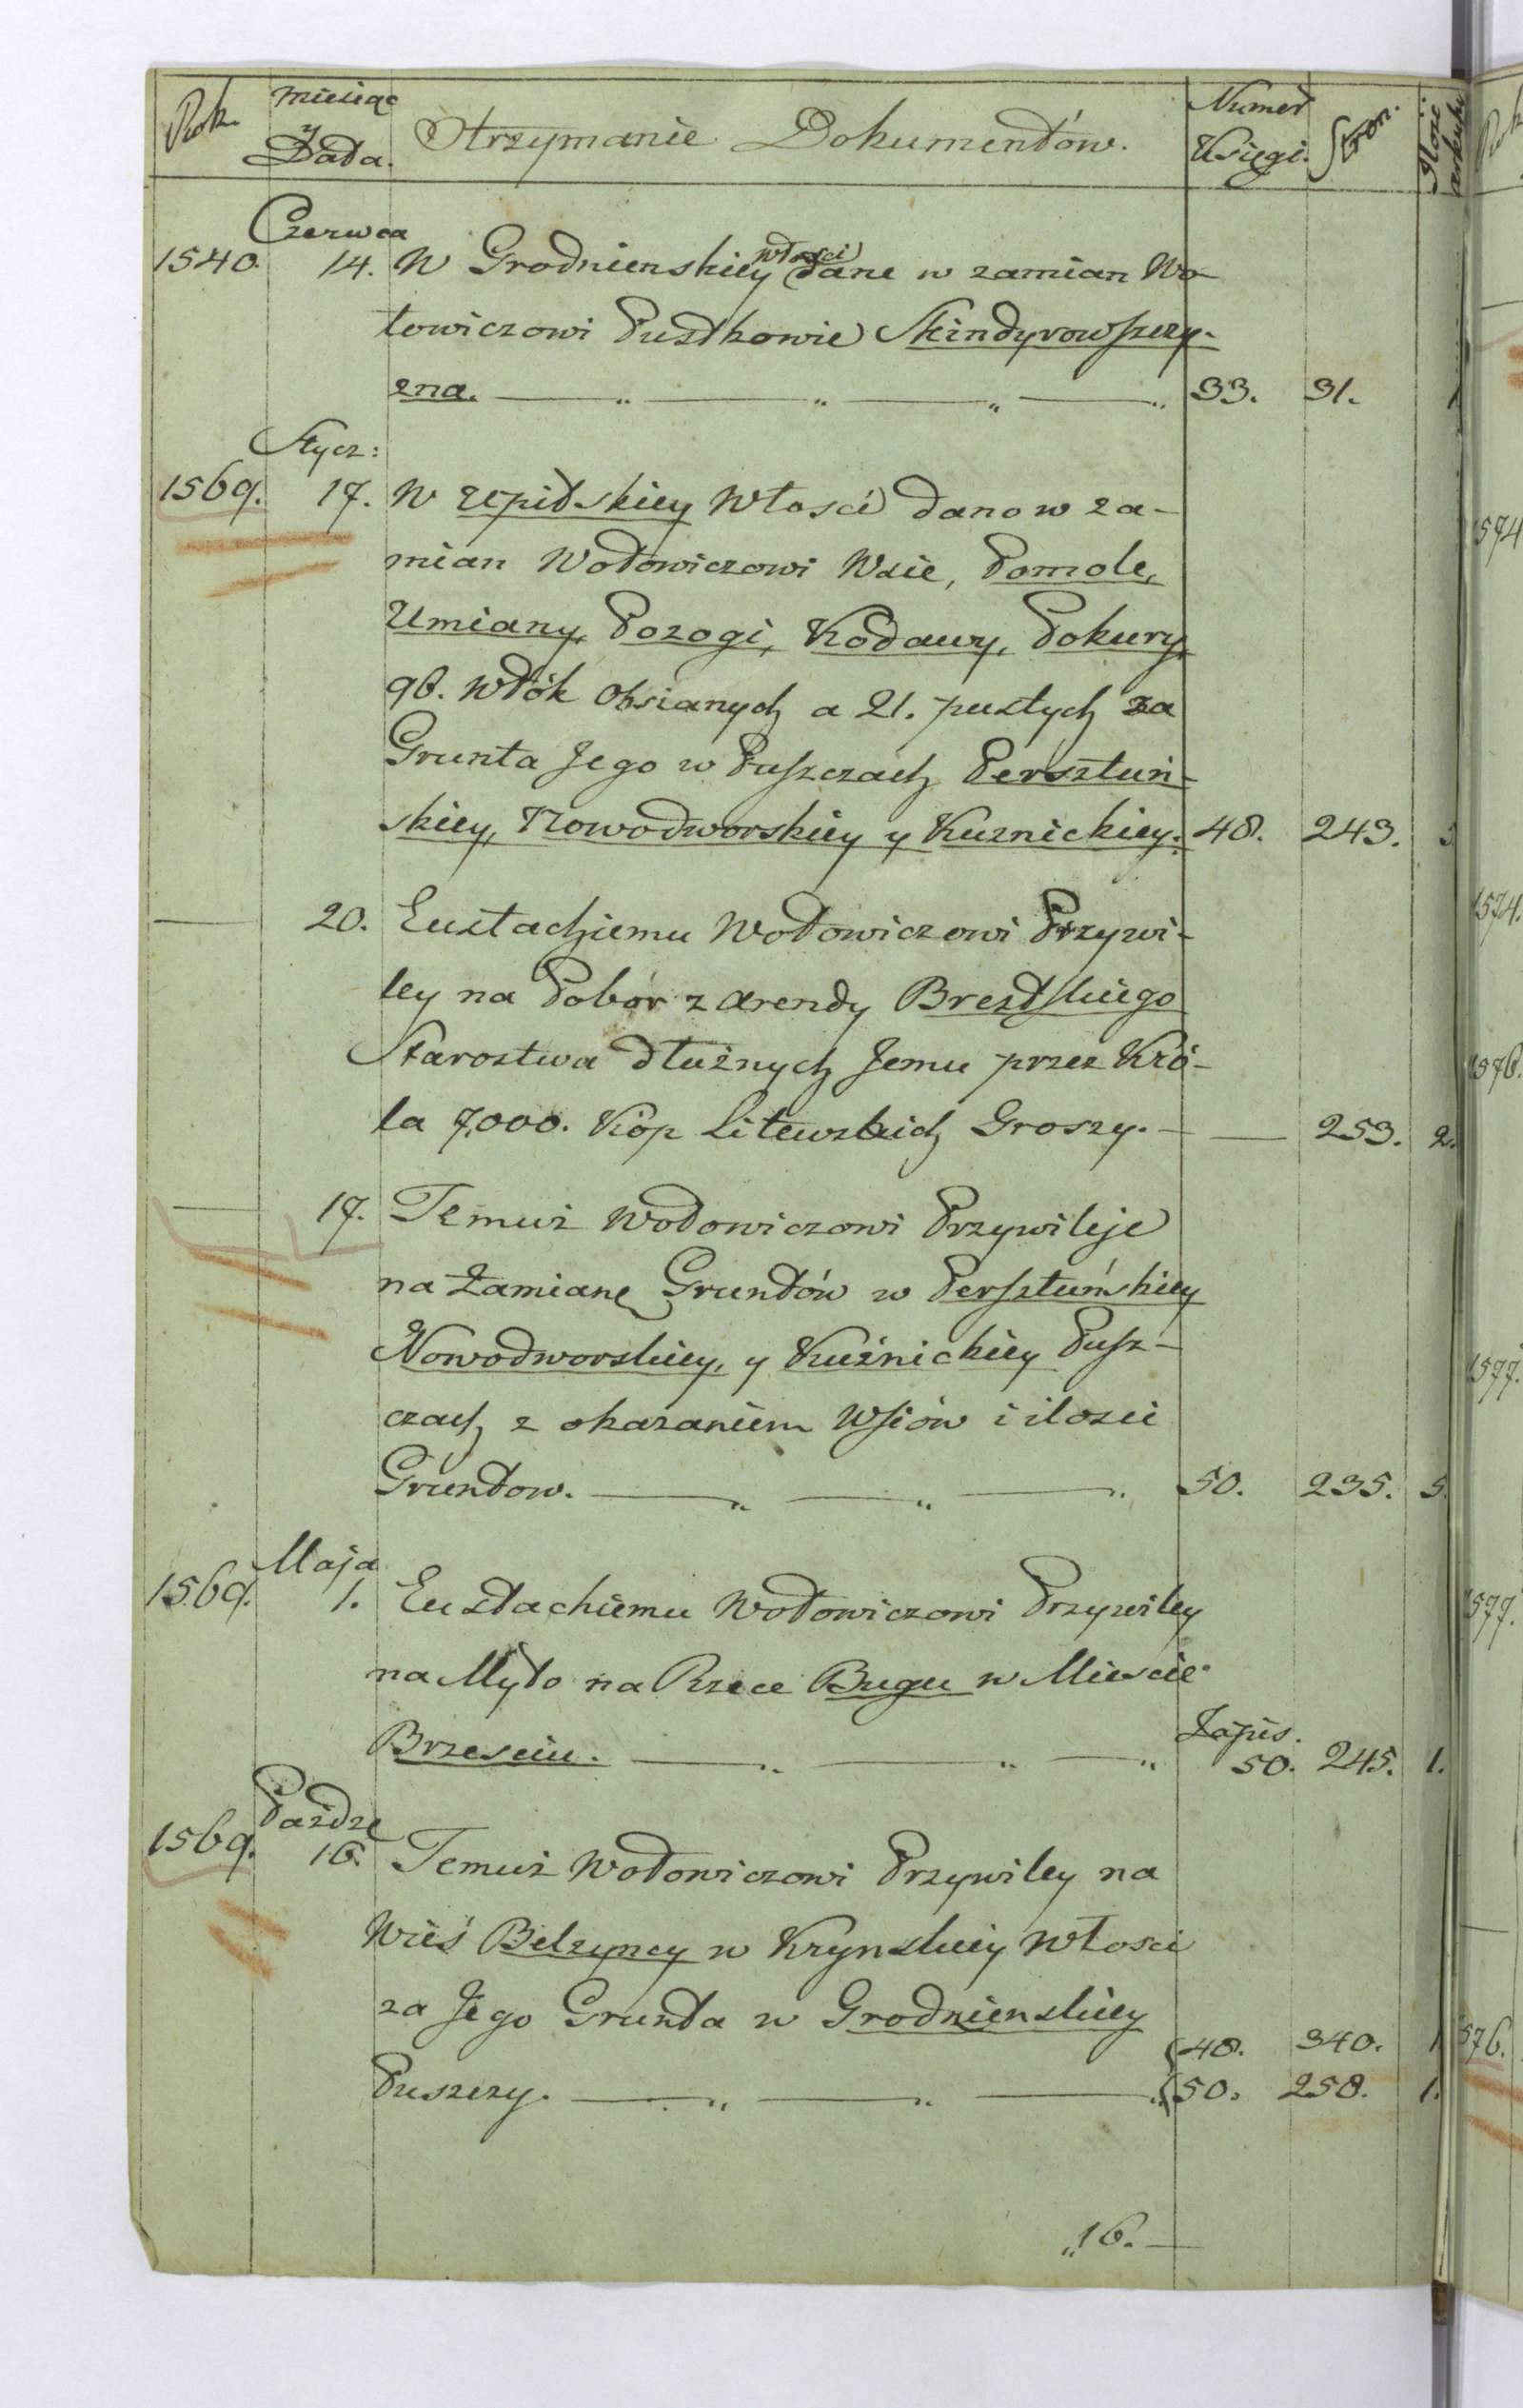 Rok Miesiąc y Data. Otrzymanie Dokumentów. Numer Księgi. Stron. Ilość arkuszy
Czerwca
1540. 14. W Grodnienskiey włości dane w zamian Wo-
łowiczowi Pustkowie Skindyrowszczy-
zna. 33. 31. 1
Stycz:
1569. 17. W Repidskiey Włości dano w za-
mian Wołowiczowi Wsie, Pomole,
Umiany, Pozogi, Kodawy, Pokury,
96. Włók Osianych a 21. pustych za
Grunta Jego w Puszczach Persztuń-
skiey, Nowodworskiey y Kuznickiey. 48. 243. 3
— 20. Eustachiemu Wołowiczowi Przywi-
ley na Pobór z arendy Brestskiego
Starostwa dłużnych Jemu przez Kró-
la 7,000. Kóp Litewskich Groszy. — — 253. 2.
— 17. Temuż Wołowiczowi Przywileje
na Zamianę Gruntów w Persztuńskiey
Nowodworskiey, y Kuźnickiey Pusz-
czach z okazaniem Wsiów i ilosci
Gruntow. 50. 235. 5.
Maja
1569. 1. Eustachiemu Wołowiczowi Przywiley
na Myto na Rzece Bugu w Miescie
Brzesciu. Zapis. 50. 245. 1.
Paźdze
1569. 16. Temuż Wołowiczowi Przywiley na
Wieś Belzyncy w Krynskiey Włosci
za Jego Grunta w Grodnienskiey
48. 340. 1
Puszczy. 50. 258. 1.
„16. —
1574
1574.
1576.
1577.
1577.
1576.